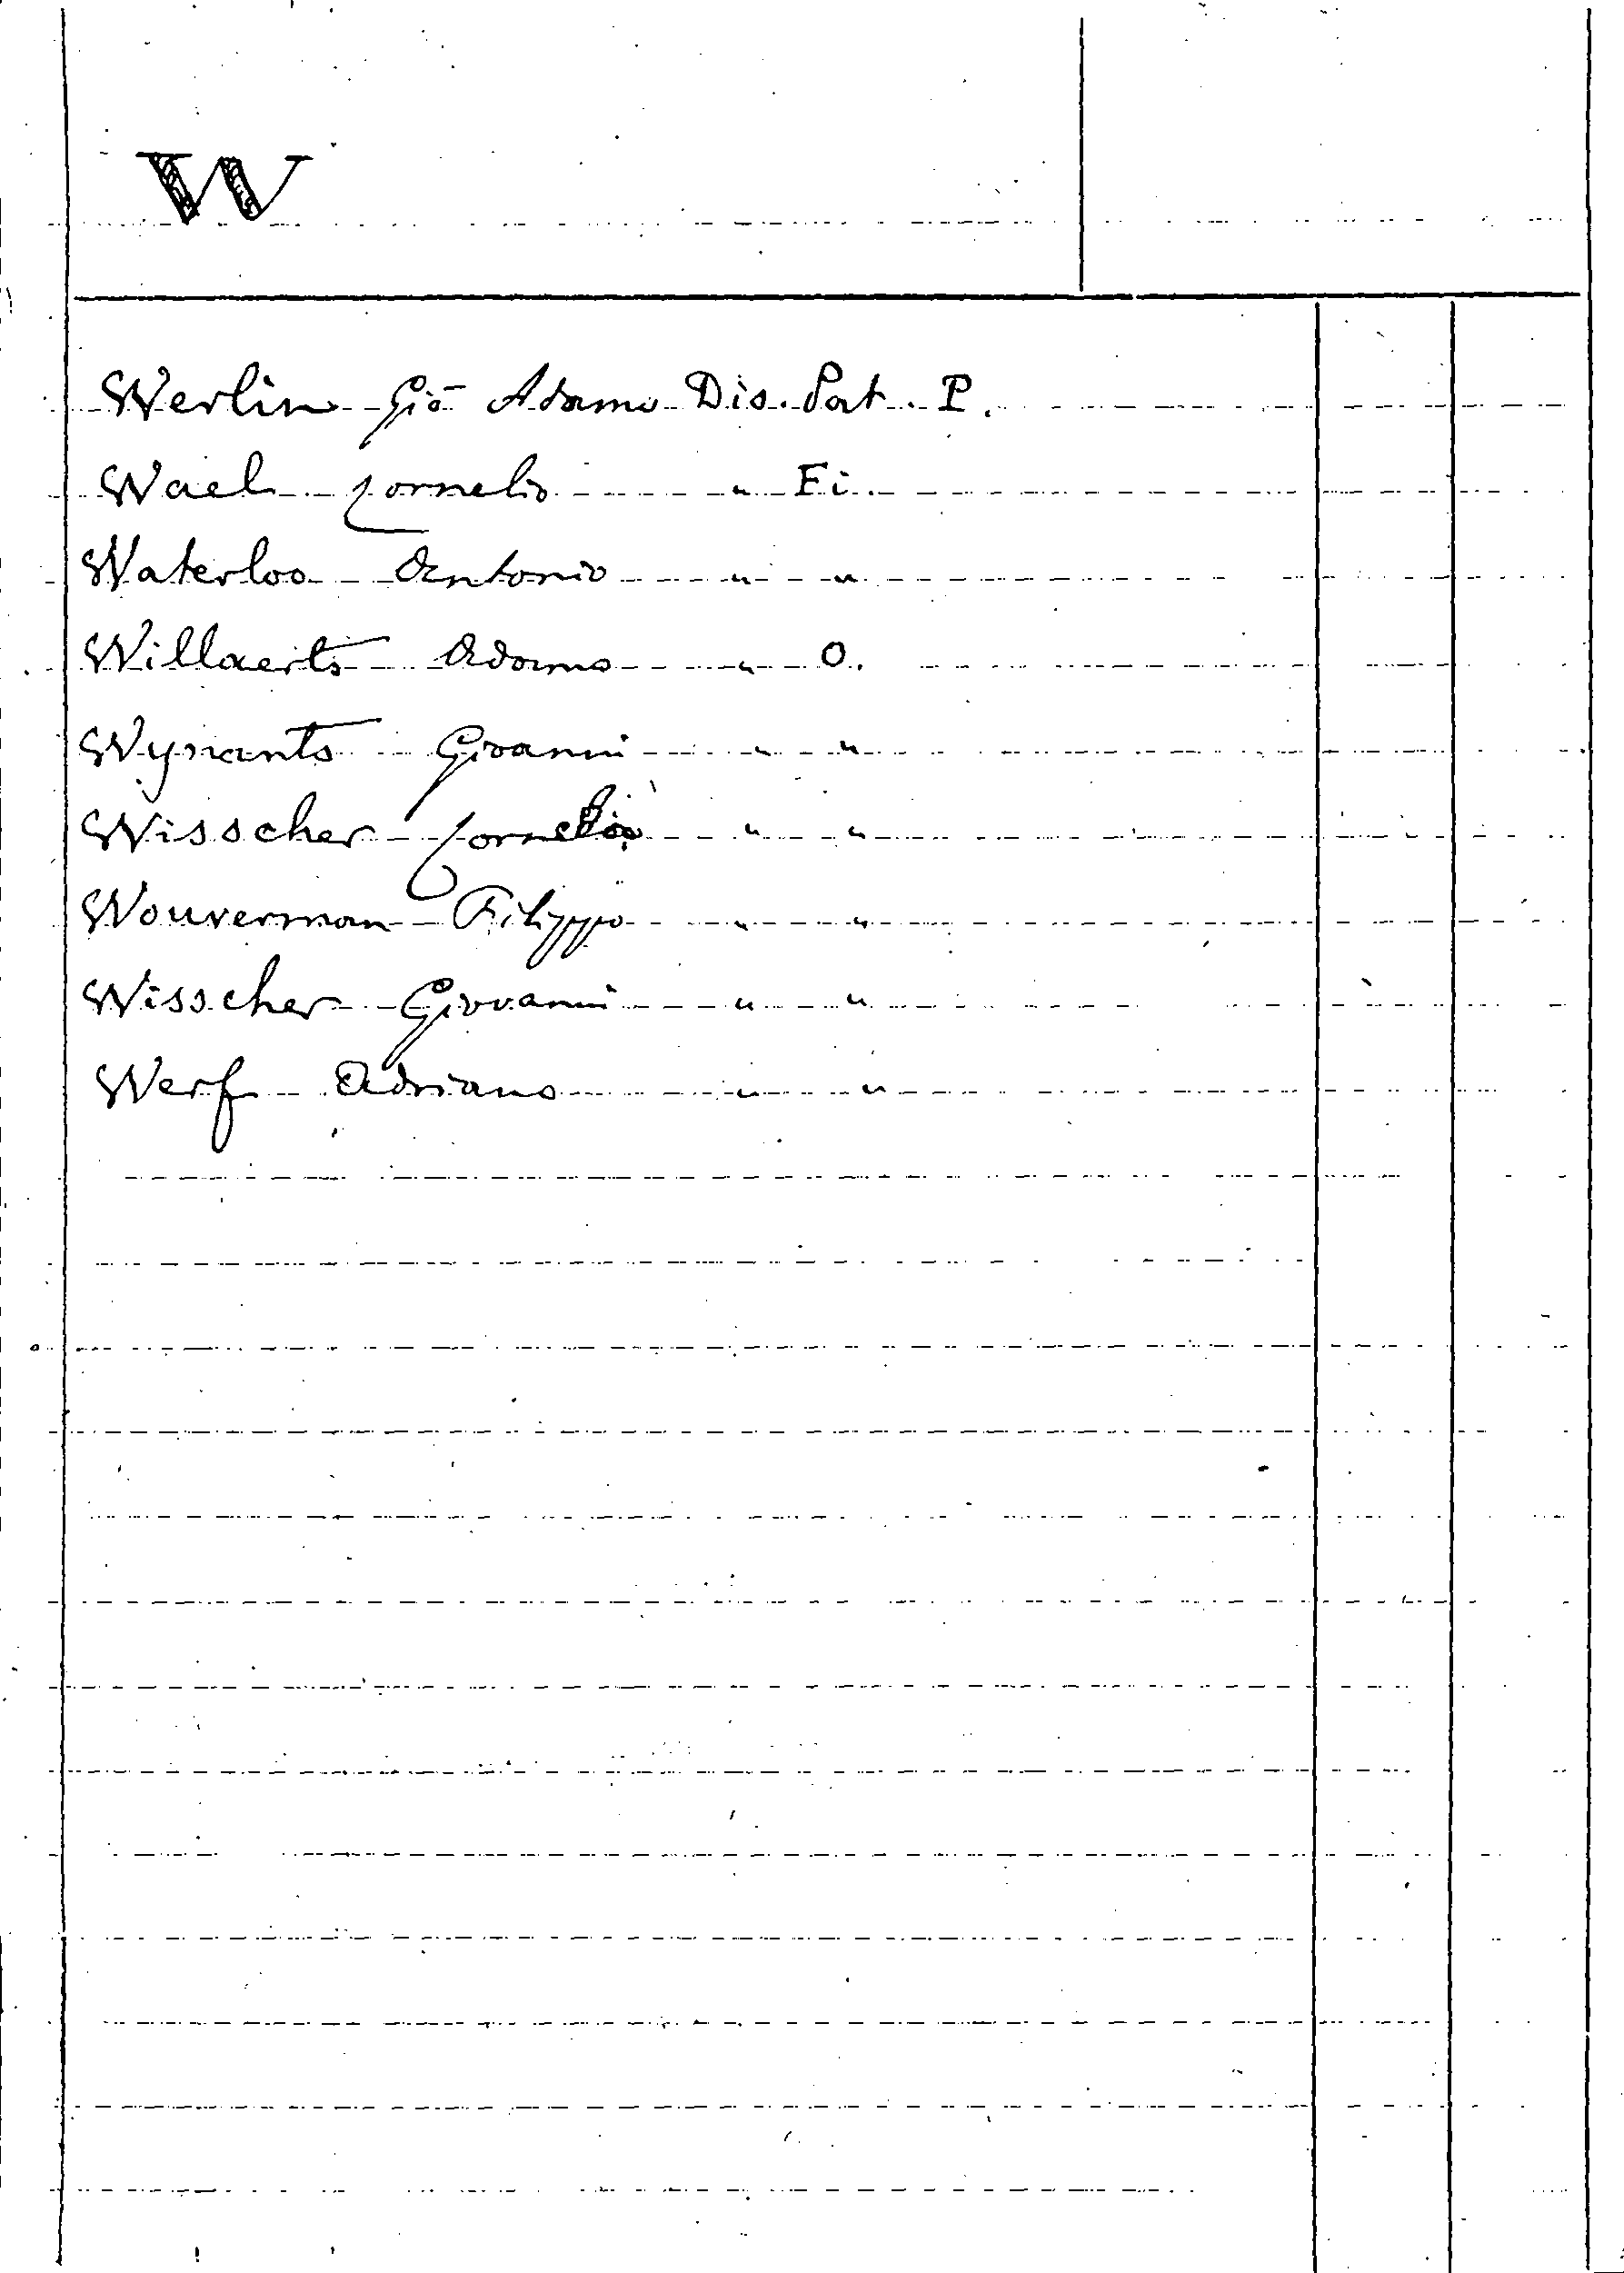 W
Werlin Giō Adamo Dis. Pat. P.
Wael Cornelio " Fi.
Waterloo Antonio " "
Willaerts Adamo " O.
Wynants Gioanni " "
Wisscher Cornelio " "
Wouverman Filippo " "
Wisscher Giovanni " "
Werf Adriano " "